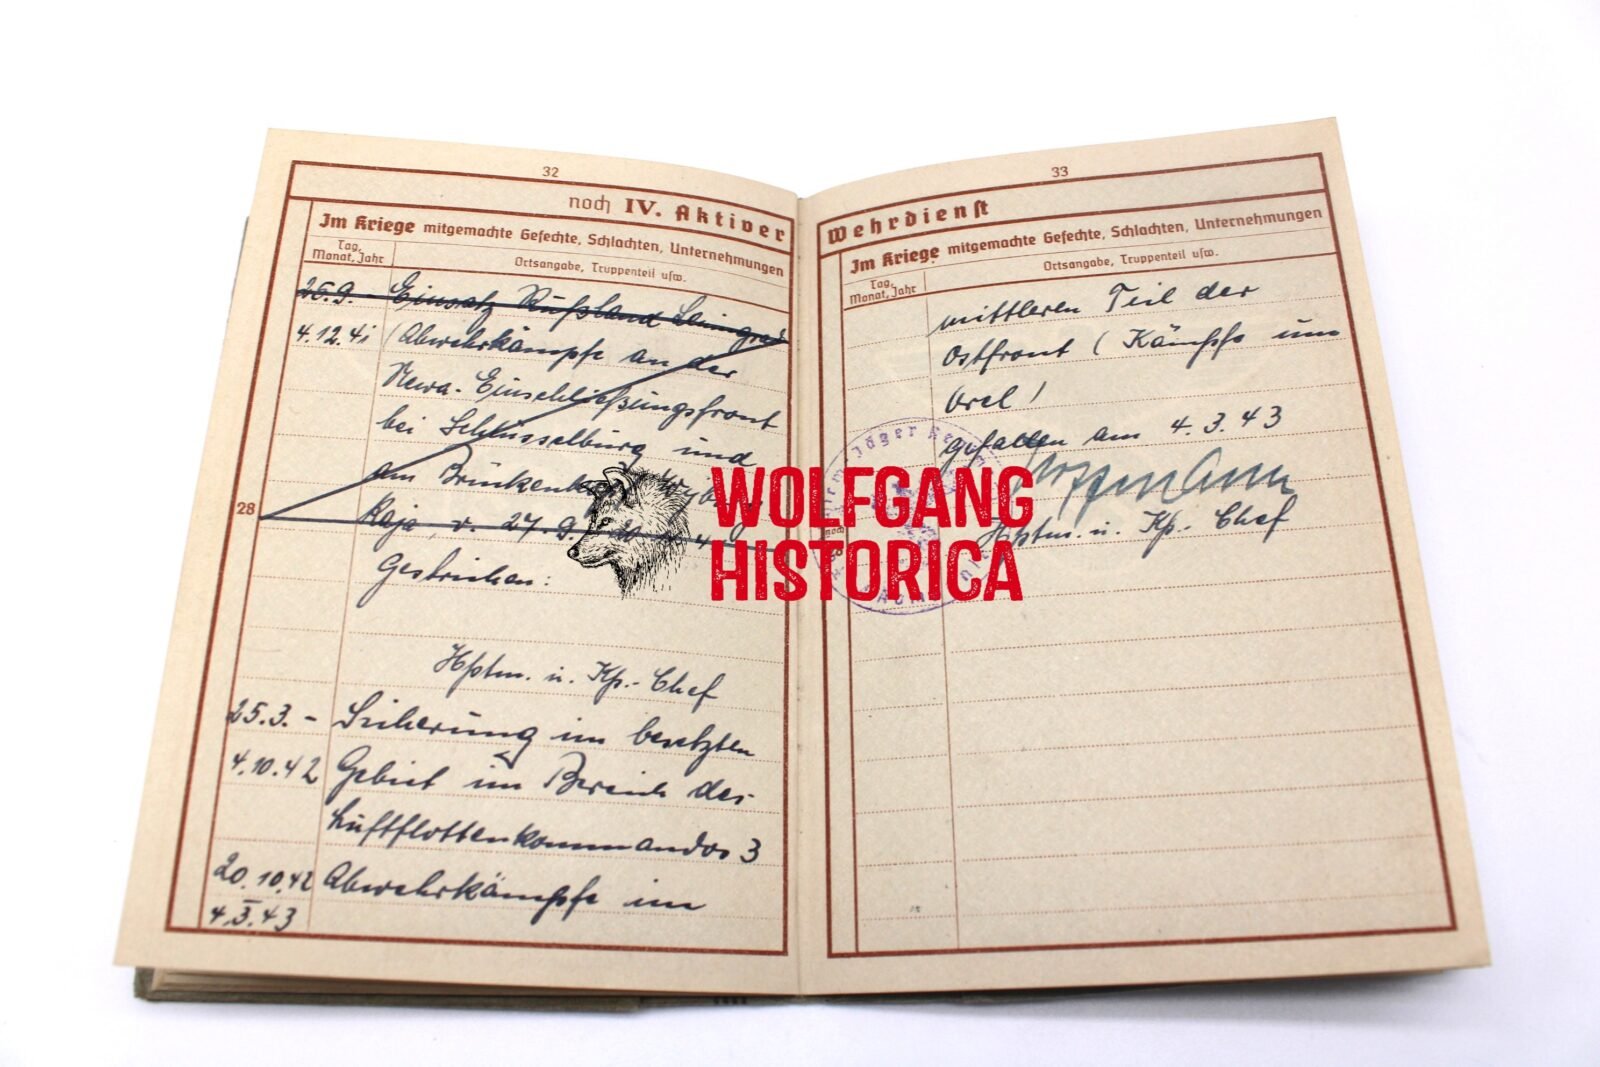 32
noch IV. Aktiver
Im Kriege mitgemachte Gefechte, Schlachten, Unternehmungen
Tag, Monat, Jahr
Ortsangabe, Truppenteil usw.
26.9. - Einsatz Rußland Leningrad
4.12.41 (Abwehrkämpfe an der
Newa-Einschließungsfront
bei Schlüsselburg und
am
Raja, v. 27.9.
Gestrichen:
Hptm. u. Kp.-Chef
25.3. - Sicherung im besetzten
4.10.42 Gebiet im Bereich des
Luftflottenkommandos 3
20.10.42 Abwehrkämpfe im
4.3.43
28
33
Wehrdienst
Im Kriege mitgemachte Gefechte, Schlachten, Unternehmungen
Tag, Monat, Jahr
Ortsangabe, Truppenteil usw.
mittleren Teil der
Ostfront (Kämpfe um
Orel)
gefallen am 4.3.43
Hptm. u. Kp.-Chef
Jäger
WOLFGANG
HISTORICA